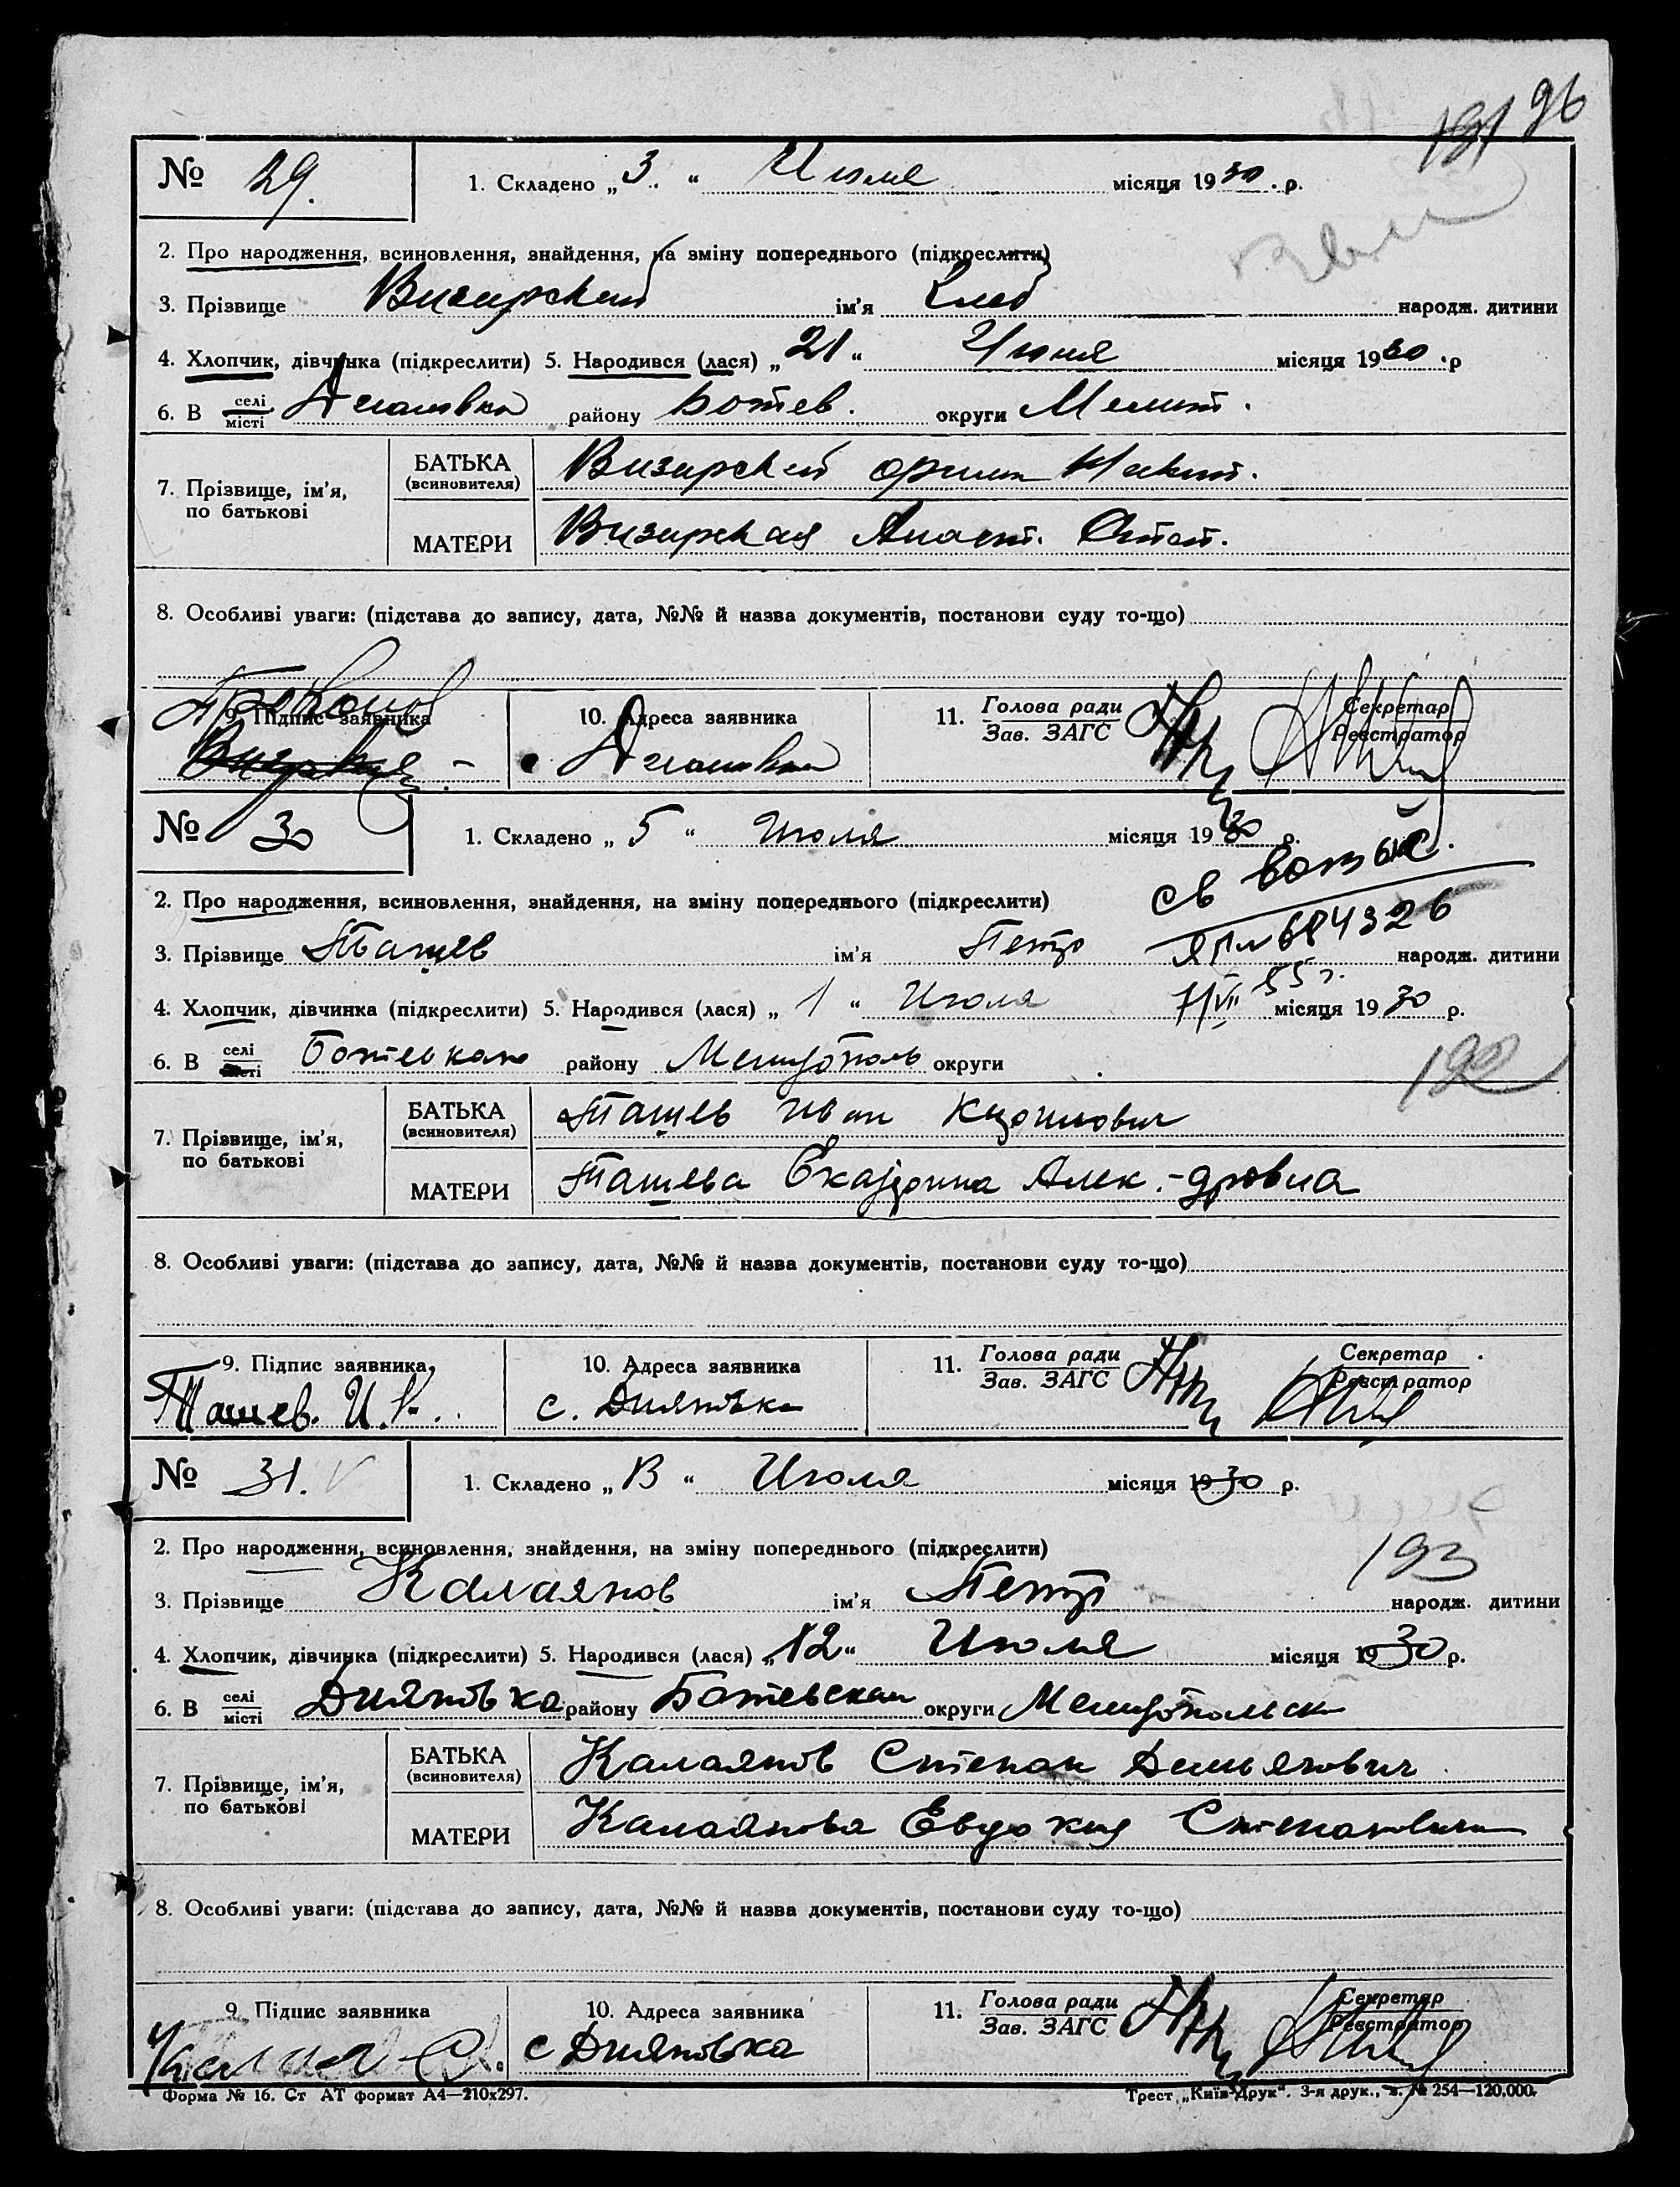 191 96
№ 29. 1. Складено „ 3. “ Июля місяця 1930. р.
2. Про народження, всиновлення, знайдення, на зміну попереднього (підкреслити)
3. Прізвище Визирский ім'я народж. дитини
4. Хлопчик, дівчинка (підкреслити) 5. Народився (лася) „ 21 “ Июня місяця 1930 р
6. В селі/місті району Ботев. округи Мелит.
7. Прізвище, ім'я, по батькові
БАТЬКА (всиновителя) Визирский
МАТЕРИ Визирская Анаст.
8. Особливі уваги: (підстава до запису, дата, №№ й назва документів, постанови суду то-що)
9. Підпис заявника 10. Адреса заявника 11. Голова ради/Зав. ЗАГС Секретар/Реєстратор
№ 30 1. Складено „ 5 “ Июля місяця 1930 р.
св
2. Про народження, всиновлення, знайдення, на зміну попереднього (підкреслити)
684326
3. Прізвище Ташев ім'я Петр народж. дитини
4. Хлопчик, дівчинка (підкреслити) 5. Народився (лася) „ 1 “ Июля місяця 1930 р.
7/VII 55 г.
6. В селі/місті району Мелитополь округи
192
7. Прізвище, ім'я, по батькові
БАТЬКА (всиновителя) Ташев Иван
МАТЕРИ Ташева Екатерина Алек.-дровна
8. Особливі уваги: (підстава до запису, дата, №№ й назва документів, постанови суду то-що)
9. Підпис заявника 10. Адреса заявника 11. Голова ради/Зав. ЗАГС Секретар/Реєстратор
Ташев. И. К. с. Дияновка
№ 31. 1. Складено „ “ Июля місяця 1930 р.
2. Про народження, всиновлення, знайдення, на зміну попереднього (підкреслити)
193
3. Прізвище Калаянов ім'я Петр народж. дитини
4. Хлопчик, дівчинка (підкреслити) 5. Народився (лася) „ 12 “ Июля місяця 1930 р.
6. В селі/місті Дияновка району Ботевскаи округи Мелитопольск
7. Прізвище, ім'я, по батькові
БАТЬКА (всиновителя) Калаянов Степан Демьянович
МАТЕРИ Калаянова Евдокия
8. Особливі уваги: (підстава до запису, дата, №№ й назва документів, постанови суду то-що)
9. Підпис заявника 10. Адреса заявника 11. Голова ради/Зав. ЗАГС Секретар/Реєстратор
с Дияновка
Форма № 16. Ст АТ формат А4—210х297. Трест „Київ-Друк“. 3-я друк., з. № 254—120.000.